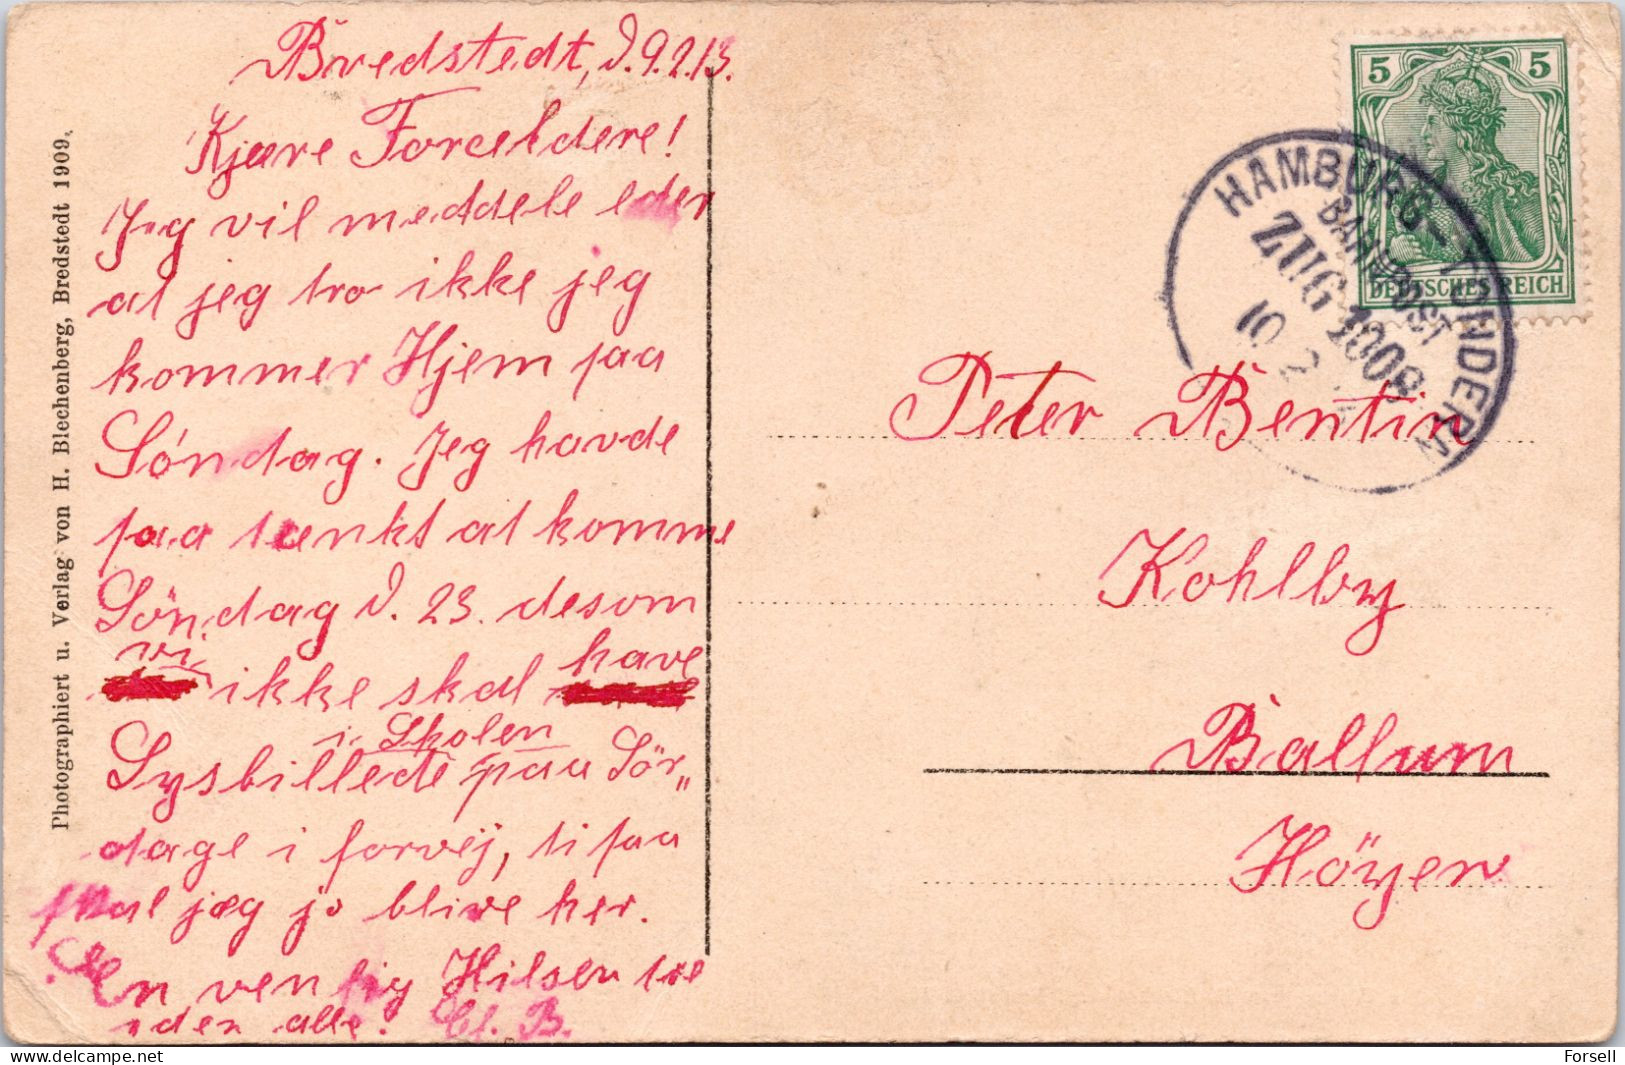 Bredstedt, d. 9.2.13.
Kjære Forældere!
Jeg vil meddele eder
at jeg tro ikke jeg
kommer Hjem paa
Sóndag. Jeg havde
paa tænkt at komme
Söndag d. 23. desom
vi ikke skal have
Lysbillede i Skolen paa Sön„
dage i forvej, ti saa
skal jæg jo blive her.
En venlig Hilsen til
eder alle. C. B.
Photographiert u. Verlag von H. Blechenberg, Bredstedt 1909.
5 5
DEUTSCHES REICH
HAMBURG-TONDERN
BAHNPOST
ZUG 1009
10 2
Peter Bentin
Kohlby
Ballum
Höyer
delcampe.net
Forsell